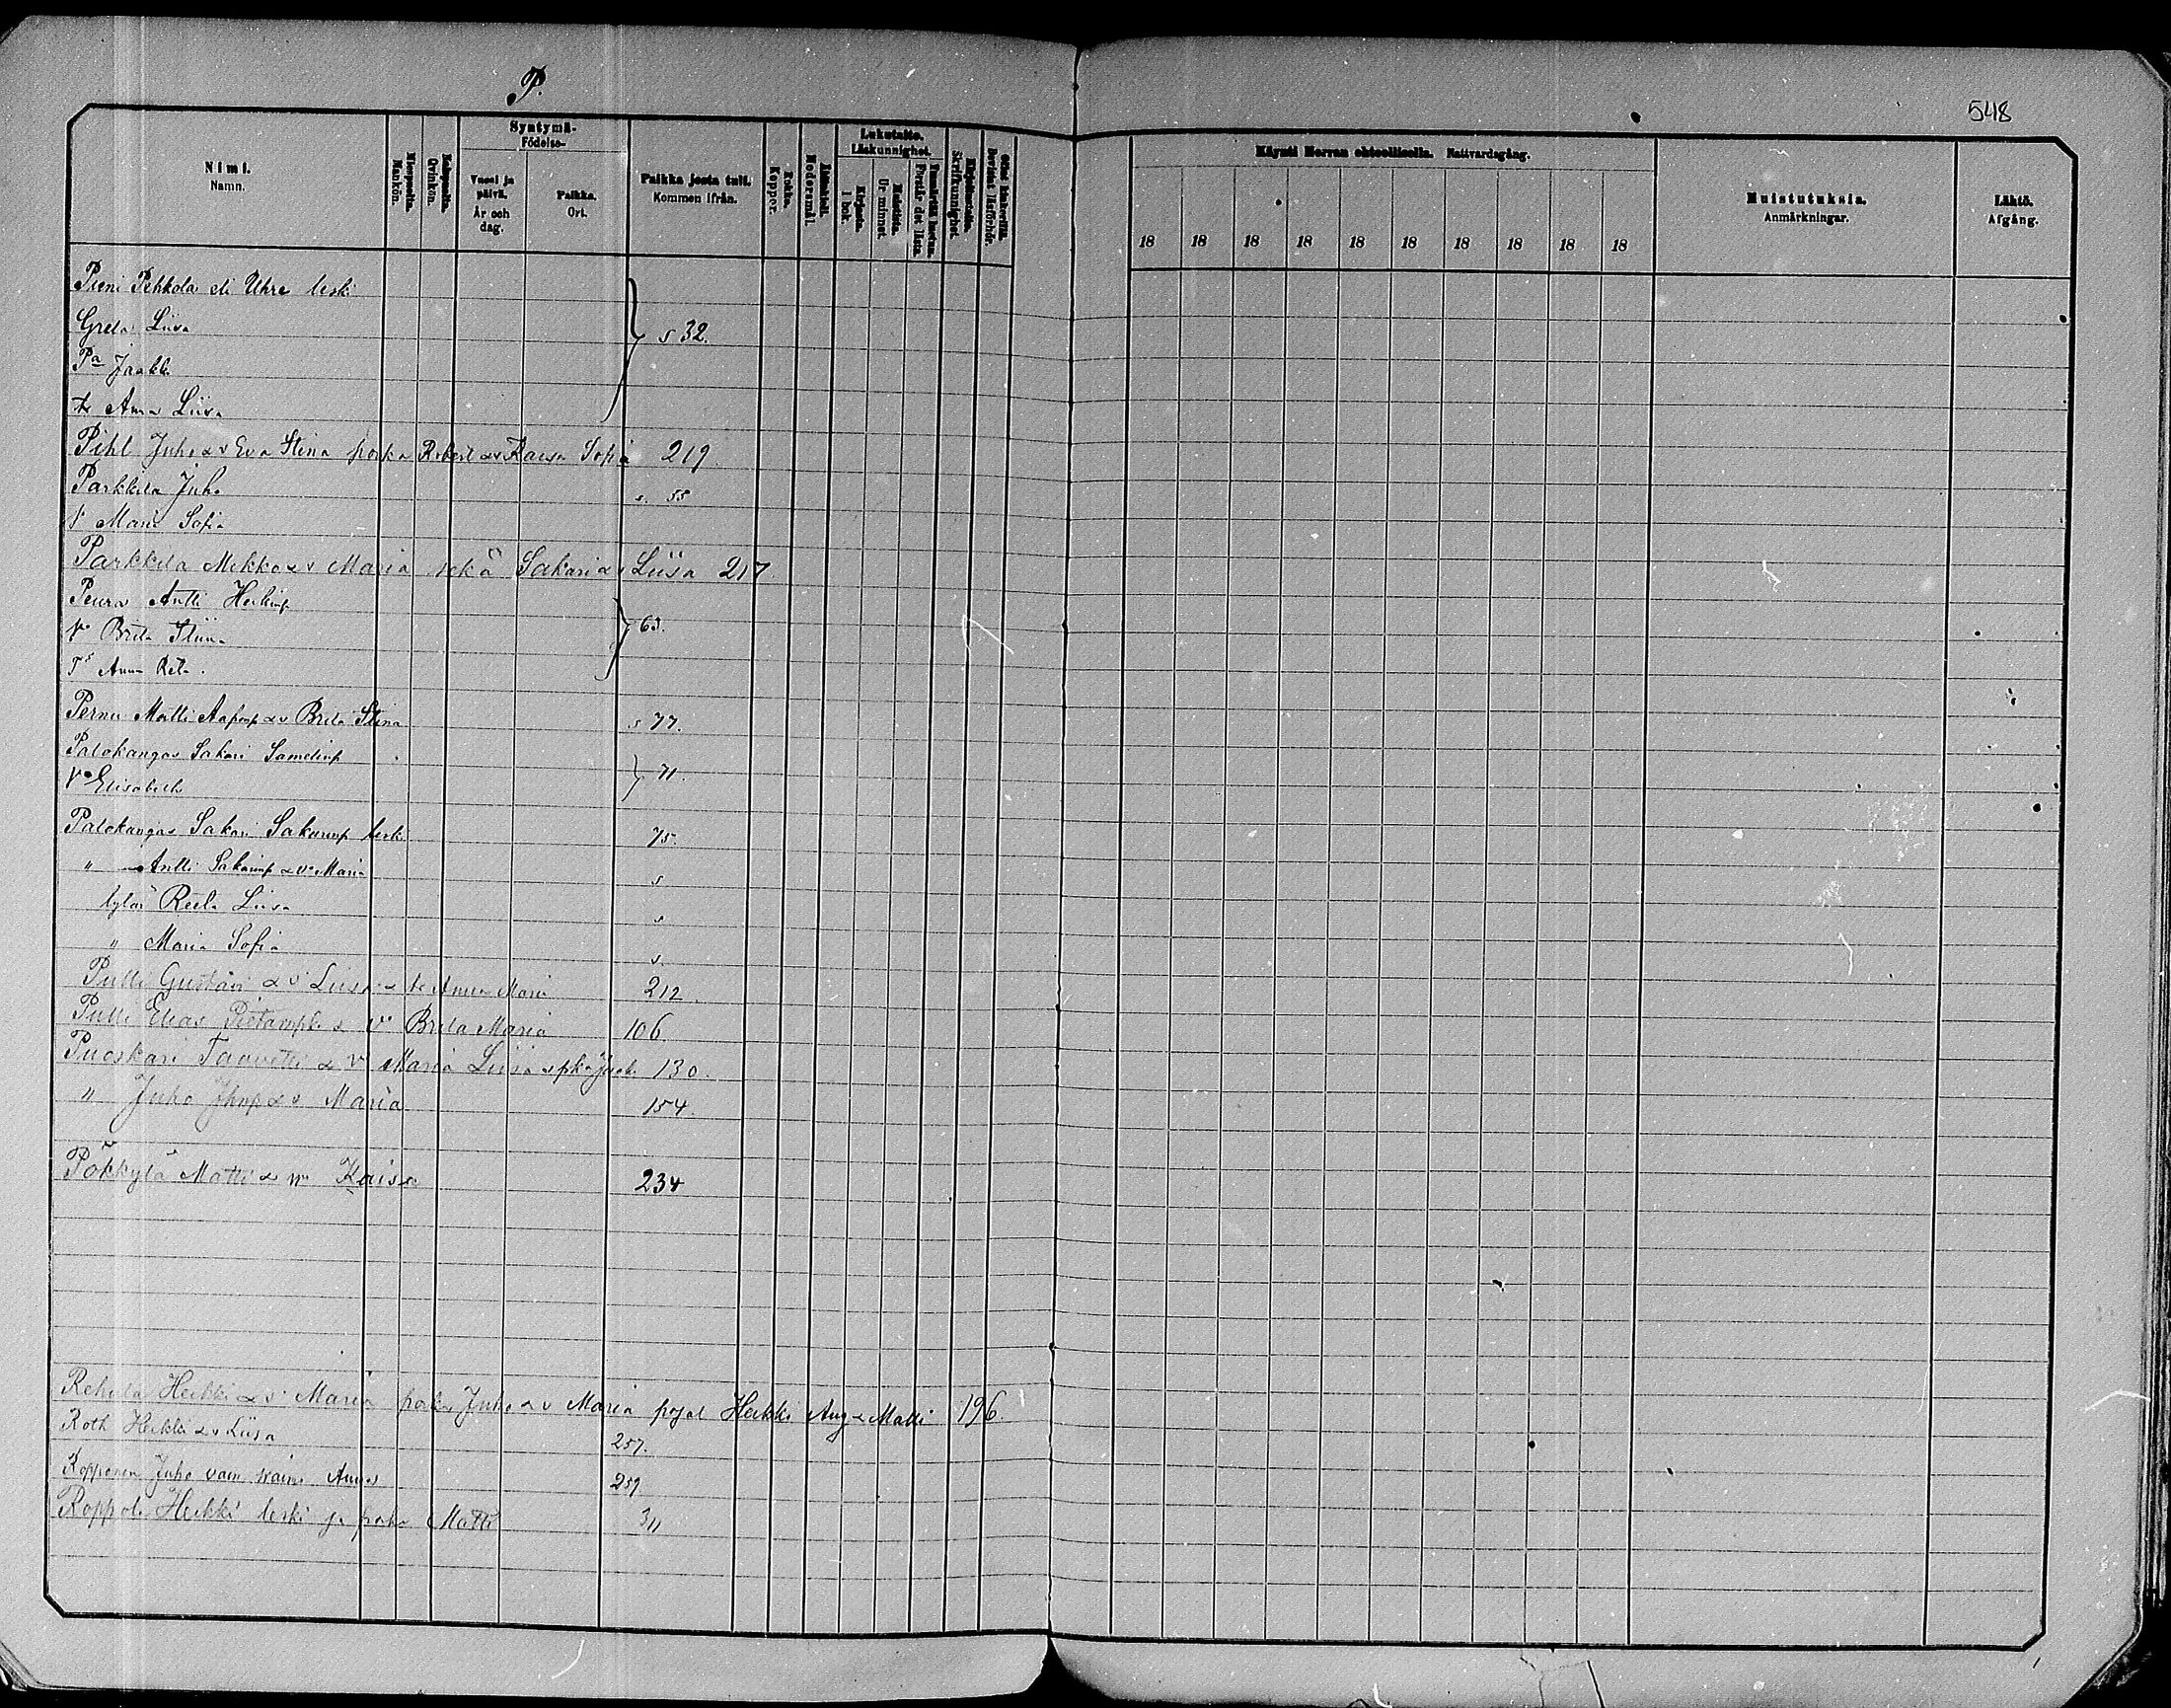 P.
548
Nimi.
Namn.
Miespuolia.
Mankön.
Qvinkön.
Syntymä-
Födelse-
Vuosi ja
päivä.
År och
dag.
Paikka.
Ort.
Paikka josta tull.
Kommen ifrån.
Rokko.
Koppor.
Modersmål.
Lukutaito.
Läskunnighet.
Kirjasta.
I bok.
Ur minnet.
Förstår det lästa.
Skrifkunnighet.
Bevistat läsförhör.
Käynti Herran ehtoollisella. Nattvardsgång.
18 18 18 18 18 18 18 18 18 18
Muistutuksia.
Anmärkningar.
Lähtö.
Afgång.
Pieni Pehkola eli Uhre leski
Greta Liisa s 32.
Pa Jaakk
tr Anna Liisa
Pihl Juho & v Eva Stina poika Robert & v Kaisa Sofia 219
Parkkila Juho s. 55
v Maria Sofia
Parkkila Mikko & v Maria sekä Sakari & v Liisa 217
Peura Antti Heikinp
vo Brita Stiina 63.
Ts Anna Reta.
Pernu Matti Aaponp & v Brita Stina s 77.
Palokangas Sakari Samelinp
Vo Elisabeth 71.
Palokangas Sakari Sakarinp leski 75.
" Antti Sakarinp & vo Maria s
tytär Reeta Liisa s
" Maria Sofia s.
Pulli Gustaav & v Liisa & tr Anna Maria 212
Pulli Elias Pietarinp & vo Brita Maria 106.
Puoskari Taavetti & v Maria Liisa & pka Jaak 130.
" Juho Jhnp & v Maria 154.
Pökkylä Matti & vo Kaisa 234
Rehula Heikki & v Maria poika Juho & v Maria pojat Heikki Aug & Matti 196.
Roth Heikki & v Liisa 257.
Ropponen Juho vain vaimo Anna 259
Roppola Heikki leski ja poika Matti 311